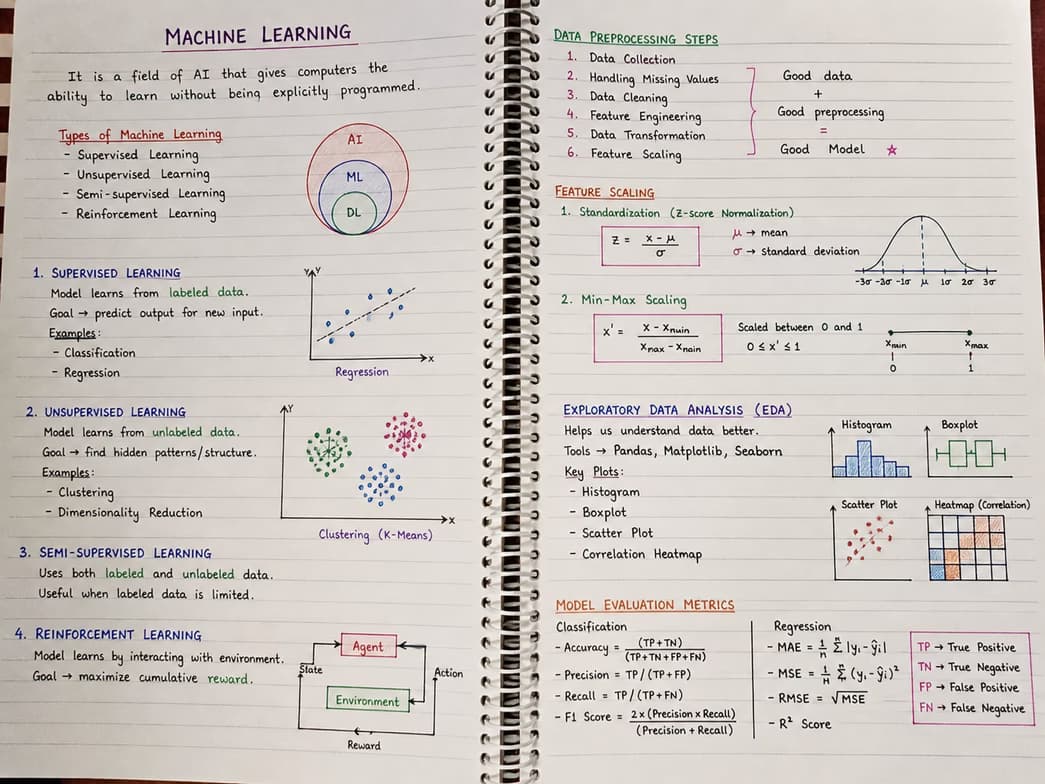 MACHINE LEARNING
It is a field of AI that gives computers the
ability to learn without being explicitly programmed.
Types of Machine Learning
- Supervised Learning
- Unsupervised Learning
- Semi-supervised Learning
- Reinforcement Learning
AI
ML
DL
1. SUPERVISED LEARNING
Model learns from labeled data.
Goal → predict output for new input.
Examples:
- Classification
- Regression
Y Y
X
Regression
2. UNSUPERVISED LEARNING
Model learns from unlabeled data.
Goal → find hidden patterns/structure.
Examples:
- Clustering
- Dimensionality Reduction
Y
X
Clustering (K-Means)
3. SEMI-SUPERVISED LEARNING
Uses both labeled and unlabeled data.
Useful when labeled data is limited.
4. REINFORCEMENT LEARNING
Model learns by interacting with environment.
Goal → maximize cumulative reward.
Agent
State
Action
Environment
Reward
DATA PREPROCESSING STEPS
1. Data Collection
2. Handling Missing Values
3. Data Cleaning
4. Feature Engineering
5. Data Transformation
6. Feature Scaling
Good data
+
Good preprocessing
=
Good Model ☆
FEATURE SCALING
1. Standardization (Z-score Normalization)
Z = (x - μ) / σ
μ → mean
σ → standard deviation
-3σ -2σ -1σ μ 1σ 2σ 3σ
2. Min-Max Scaling
x' = (x - x_nuin) / (x_nax - x_nain)
Scaled between 0 and 1
0 ≤ x' ≤ 1
x_min x_max
0 1
EXPLORATORY DATA ANALYSIS (EDA)
Helps us understand data better.
Tools → Pandas, Matplotlib, Seaborn
Key Plots:
- Histogram
- Boxplot
- Scatter Plot
- Correlation Heatmap
Histogram
Boxplot
Scatter Plot
Heatmap (Correlation)
MODEL EVALUATION METRICS
Classification
- Accuracy = (TP+TN) / (TP+TN+FP+FN)
- Precision = TP/(TP+FP)
- Recall = TP/(TP+FN)
- F1 Score = 2x(Precision x Recall) / (Precision + Recall)
Regression
- MAE = 1/n Σ |yi - ŷi|
- MSE = 1/n Σ (yi - ŷi)²
- RMSE = √MSE
- R² Score
TP → True Positive
TN → True Negative
FP → False Positive
FN → False Negative